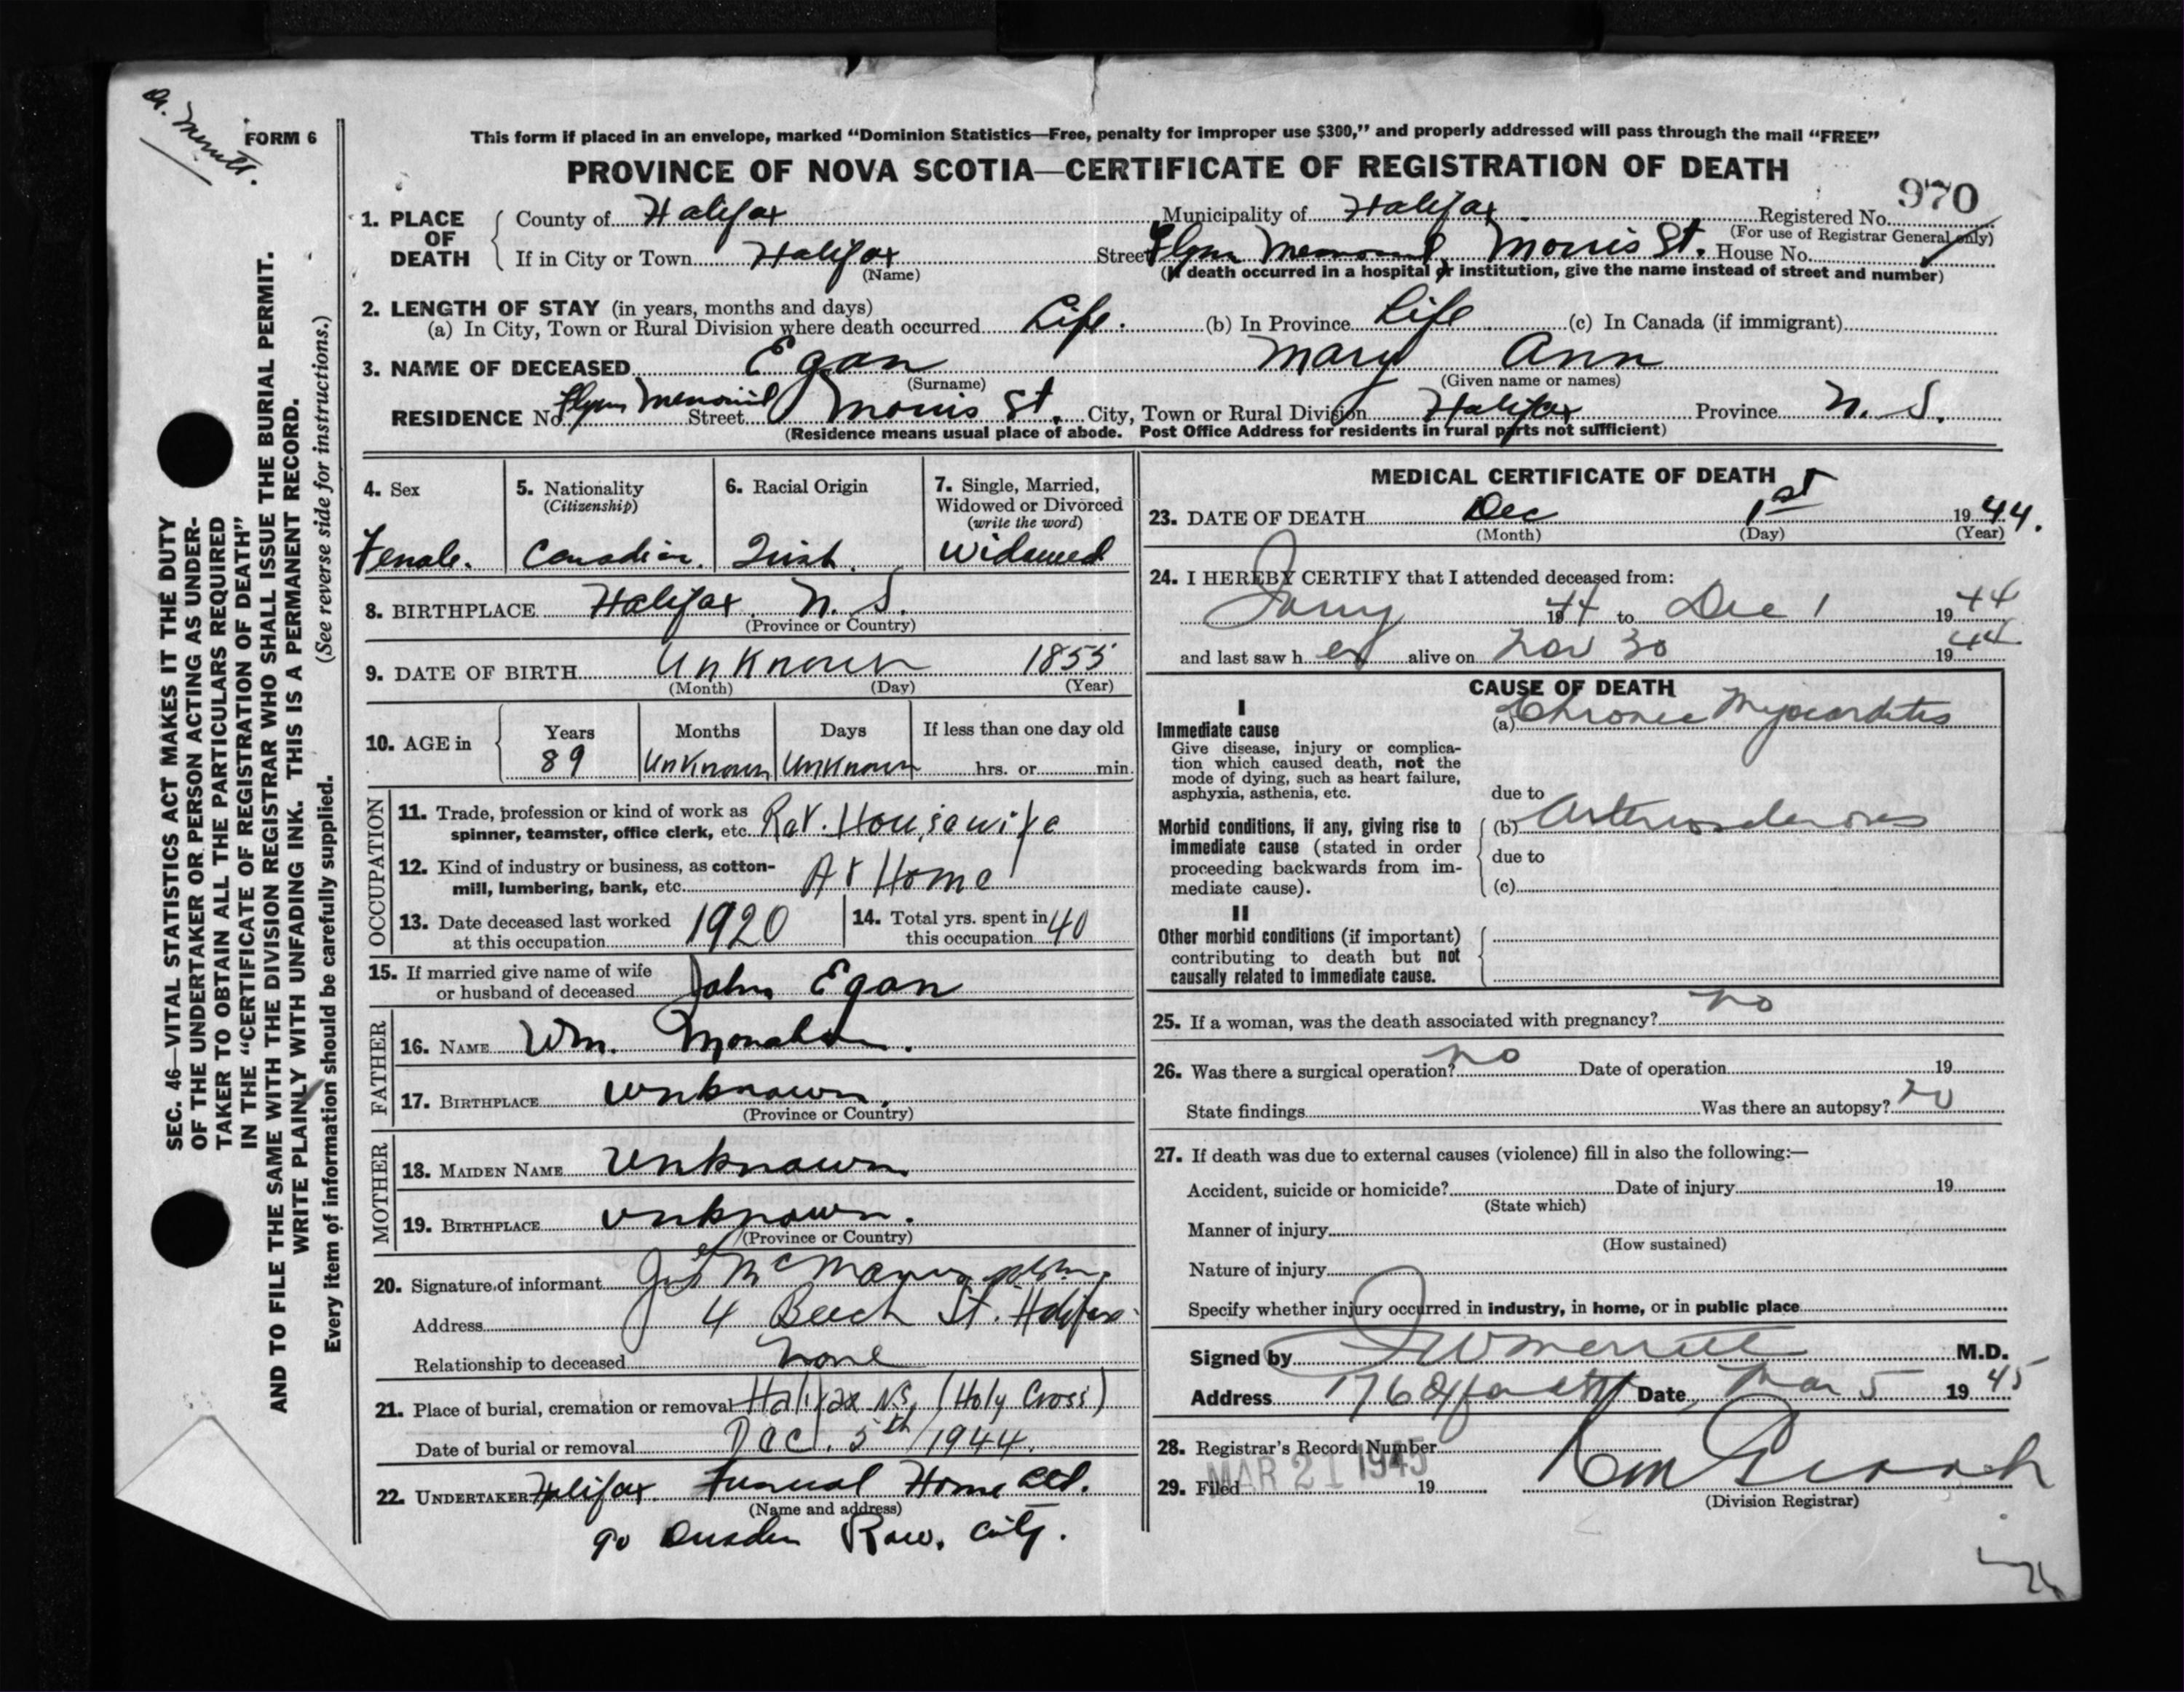 Dr. Merritt.
FORM 6
This form if placed in an envelope, marked “Dominion Statistics—Free, penalty for improper use $300,” and properly addressed will pass through the mail “FREE”
PROVINCE OF NOVA SCOTIA—CERTIFICATE OF REGISTRATION OF DEATH
970
1. PLACE OF DEATH
County of Halifax Municipality of Halifax Registered No.
(For use of Registrar General only)
If in City or Town Halifax Street Flynn Memorial, Morris St. House No.
(Name) (If death occurred in a hospital or institution, give the name instead of street and number)
2. LENGTH OF STAY (in years, months and days)
(a) In City, Town or Rural Division where death occurred Life. (b) In Province Life (c) In Canada (if immigrant)
3. NAME OF DECEASED Egan Mary Ann
(Surname) (Given name or names)
RESIDENCE No. Flynn Memorial Street Morris St. City, Town or Rural Division Halifax Province N. S.
(Residence means usual place of abode. Post Office Address for residents in rural parts not sufficient)
4. Sex
Female.
5. Nationality
(Citizenship)
Canadian.
6. Racial Origin
Irish.
7. Single, Married,
Widowed or Divorced
(write the word)
Widowed
8. BIRTHPLACE Halifax, N. S.
(Province or Country)
9. DATE OF BIRTH Unknown 1855
(Month) (Day) (Year)
10. AGE in
Years Months Days If less than one day old
89 Unknown Unknown hrs. or min.
OCCUPATION
11. Trade, profession or kind of work as
spinner, teamster, office clerk, etc. Ret. Housewife
12. Kind of industry or business, as cotton-
mill, lumbering, bank, etc. At Home
13. Date deceased last worked
at this occupation 1920
14. Total yrs. spent in
this occupation 40
15. If married give name of wife
or husband of deceased John Egan
FATHER
16. NAME Wm. Monahan.
17. BIRTHPLACE Unknown.
(Province or Country)
MOTHER
18. MAIDEN NAME Unknown
19. BIRTHPLACE Unknown.
(Province or Country)
20. Signature of informant McManus
Address 4 Beech St. Halifax
Relationship to deceased None
21. Place of burial, cremation or removal Halifax N.S. (Holy Cross)
Date of burial or removal Dec. 5th/1944.
22. UNDERTAKER Halifax Funeral Home Ltd.
(Name and address)
90 Row, City.
MEDICAL CERTIFICATE OF DEATH
23. DATE OF DEATH Dec 1st 1944.
(Month) (Day) (Year)
24. I HEREBY CERTIFY that I attended deceased from:
Jany 1944 to Dec 1 1944
and last saw her alive on Nov 30 1944
CAUSE OF DEATH
I
Immediate cause
Give disease, injury or complica-
tion which caused death, not the
mode of dying, such as heart failure,
asphyxia, asthenia, etc.
(a) Chronic Myocarditis
due to
Morbid conditions, if any, giving rise to
immediate cause (stated in order
proceeding backwards from im-
mediate cause).
(b) Arteriosclerosis
due to
(c)
II
Other morbid conditions (if important)
contributing to death but not
causally related to immediate cause.
25. If a woman, was the death associated with pregnancy? No
26. Was there a surgical operation? No Date of operation 19
State findings Was there an autopsy? No
27. If death was due to external causes (violence) fill in also the following:—
Accident, suicide or homicide? Date of injury 19
(State which)
Manner of injury
(How sustained)
Nature of injury
Specify whether injury occurred in industry, in home, or in public place
Signed by Merritt M.D.
Address 176 Date Mar 5 1945
28. Registrar's Record Number
29. Filed MAR 21 1945 19
(Division Registrar)
SEC. 46—VITAL STATISTICS ACT MAKES IT THE DUTY
OF THE UNDERTAKER OR PERSON ACTING AS UNDER-
TAKER TO OBTAIN ALL THE PARTICULARS REQUIRED
IN THE “CERTIFICATE OF REGISTRATION OF DEATH”
AND TO FILE THE SAME WITH THE DIVISION REGISTRAR WHO SHALL ISSUE THE BURIAL PERMIT.
WRITE PLAINLY WITH UNFADING INK. THIS IS A PERMANENT RECORD.
Every item of information should be carefully supplied. (See reverse side for instructions.)